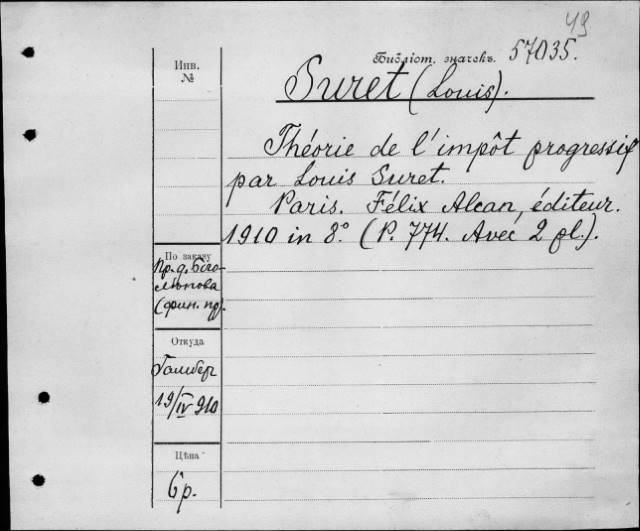 49
Инв. №
Библіот. значекъ. 57035.
Suret (Louis).
Théorie de l'impôt progressif
par Louis Suret.
Paris. Félix Alcan, éditeur.
1910 in 8° (P. 774. Avec 2 pl.).
По заказу
Пр. д. Бого-
лѣпова
(фин. пр).
Откуда
Гамбер
19/IV 910
Цѣна
6 р.